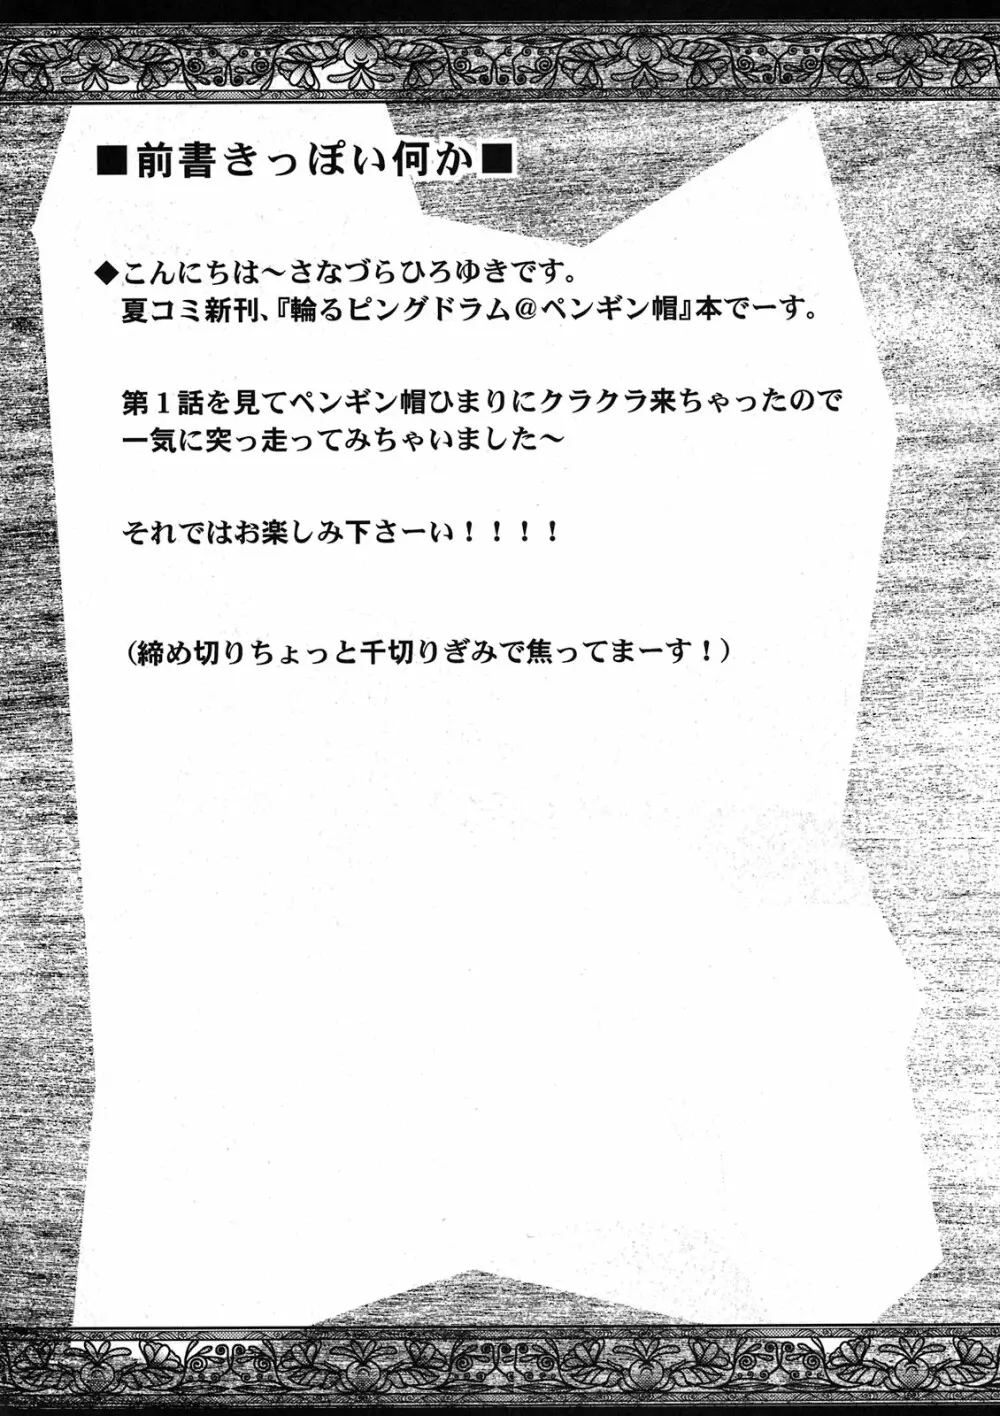 ■前書きっぽい何か■
◆こんにちは～さなづらひろゆきです。
夏コミ新刊、『輪るピングドラム＠ペンギン帽』本でーす。
第１話を見てペンギン帽ひまりにクラクラ来ちゃったので
一気に突っ走ってみちゃいました～
それではお楽しみ下さーい！！！！
（締め切りちょっと千切りぎみで焦ってまーす！）